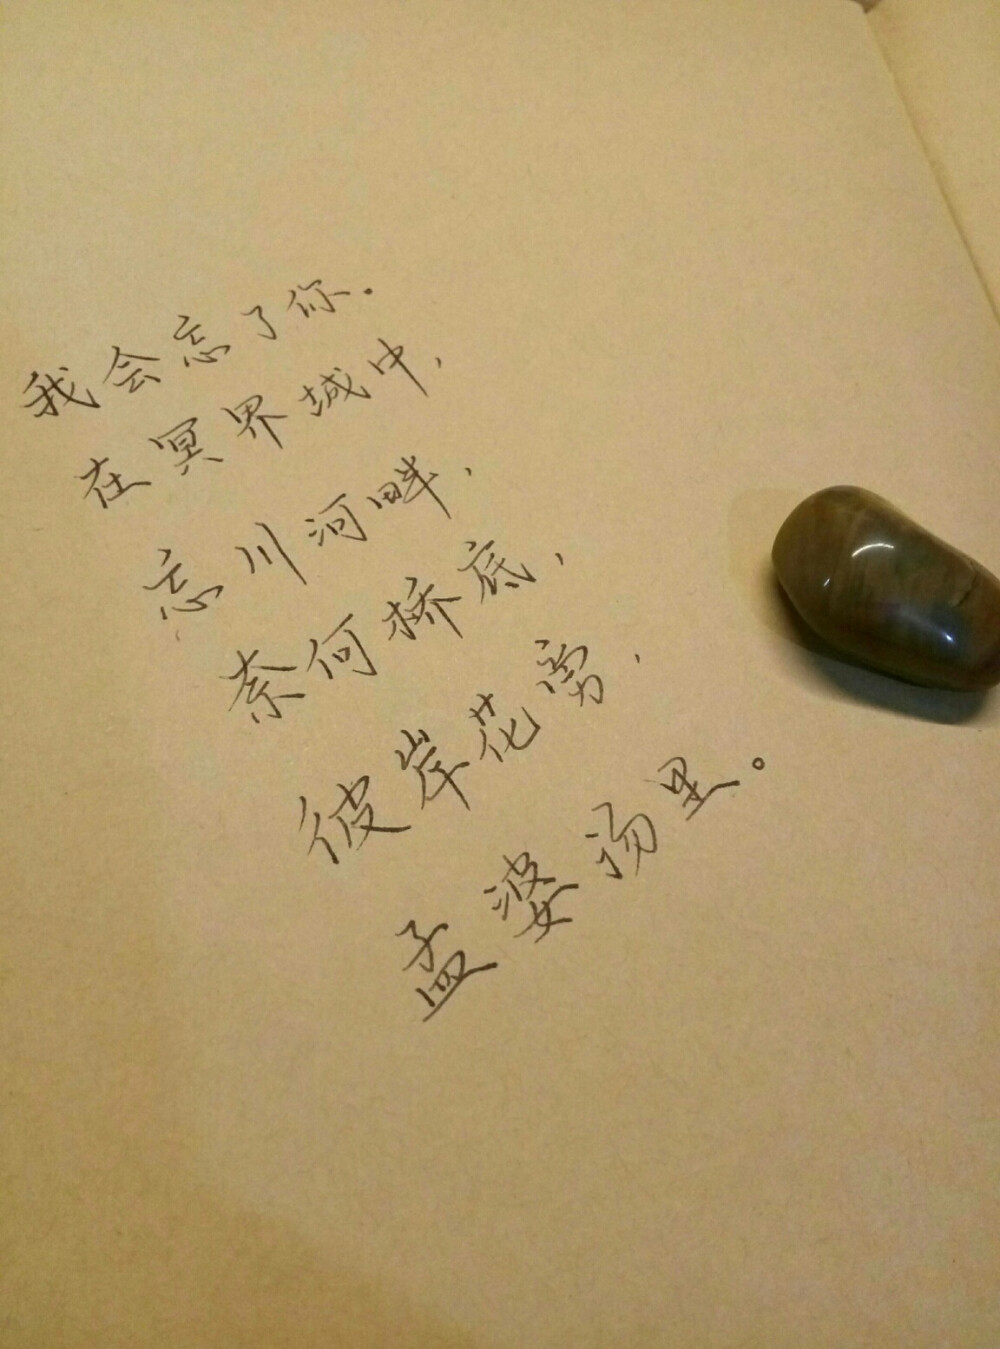 我会忘了你.
在冥界城中,
忘川河畔,
奈何桥底,
彼岸花旁,
孟婆汤里。